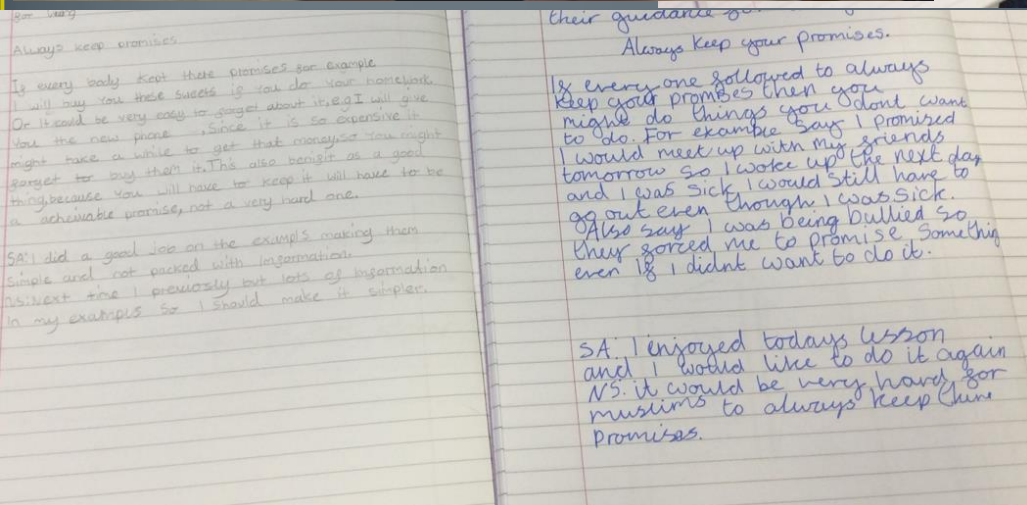 Always keep promises
If every body kept there promises for example
I will buy you these sweets if you do your homework.
Or it could be very easy to forget about it, e.g I will give
you the new phone. Since it is so expensive it
might take a while to get that money, so you might
forget to buy them it. This also benifit as a good
thing, because you will have to keep it will have to be
a acheivable promise, not a very hard one.
SA: I did a good job on the exampls making them
simple and not packed with information.
NS: Next time I previously but lots of information
in my exampls so I should make it simpler.
their guidance
Always keep your promises.
If everyone followed to always
keep your promises then you
might do things you dont want
to do. For example say I promised
I would meet up with my friends
tomorrow so I woke up the next day
and I was sick I would still have to
go out even though I was sick.
Also say I was being bullied so
they forced me to promise somethin
even if I didnt want to do it.
SA: I enjoyed todays lesson
and I would like to do it again
NS: it would be very hard for
muslims to always keep there
promises.